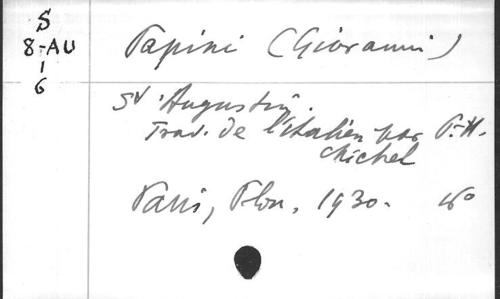 S
8-AU
1
6
Papini (Giovanni)
St Augustin.
Trad. de l'italien par P.-H.
Michel
Paris, Plon, 1930.